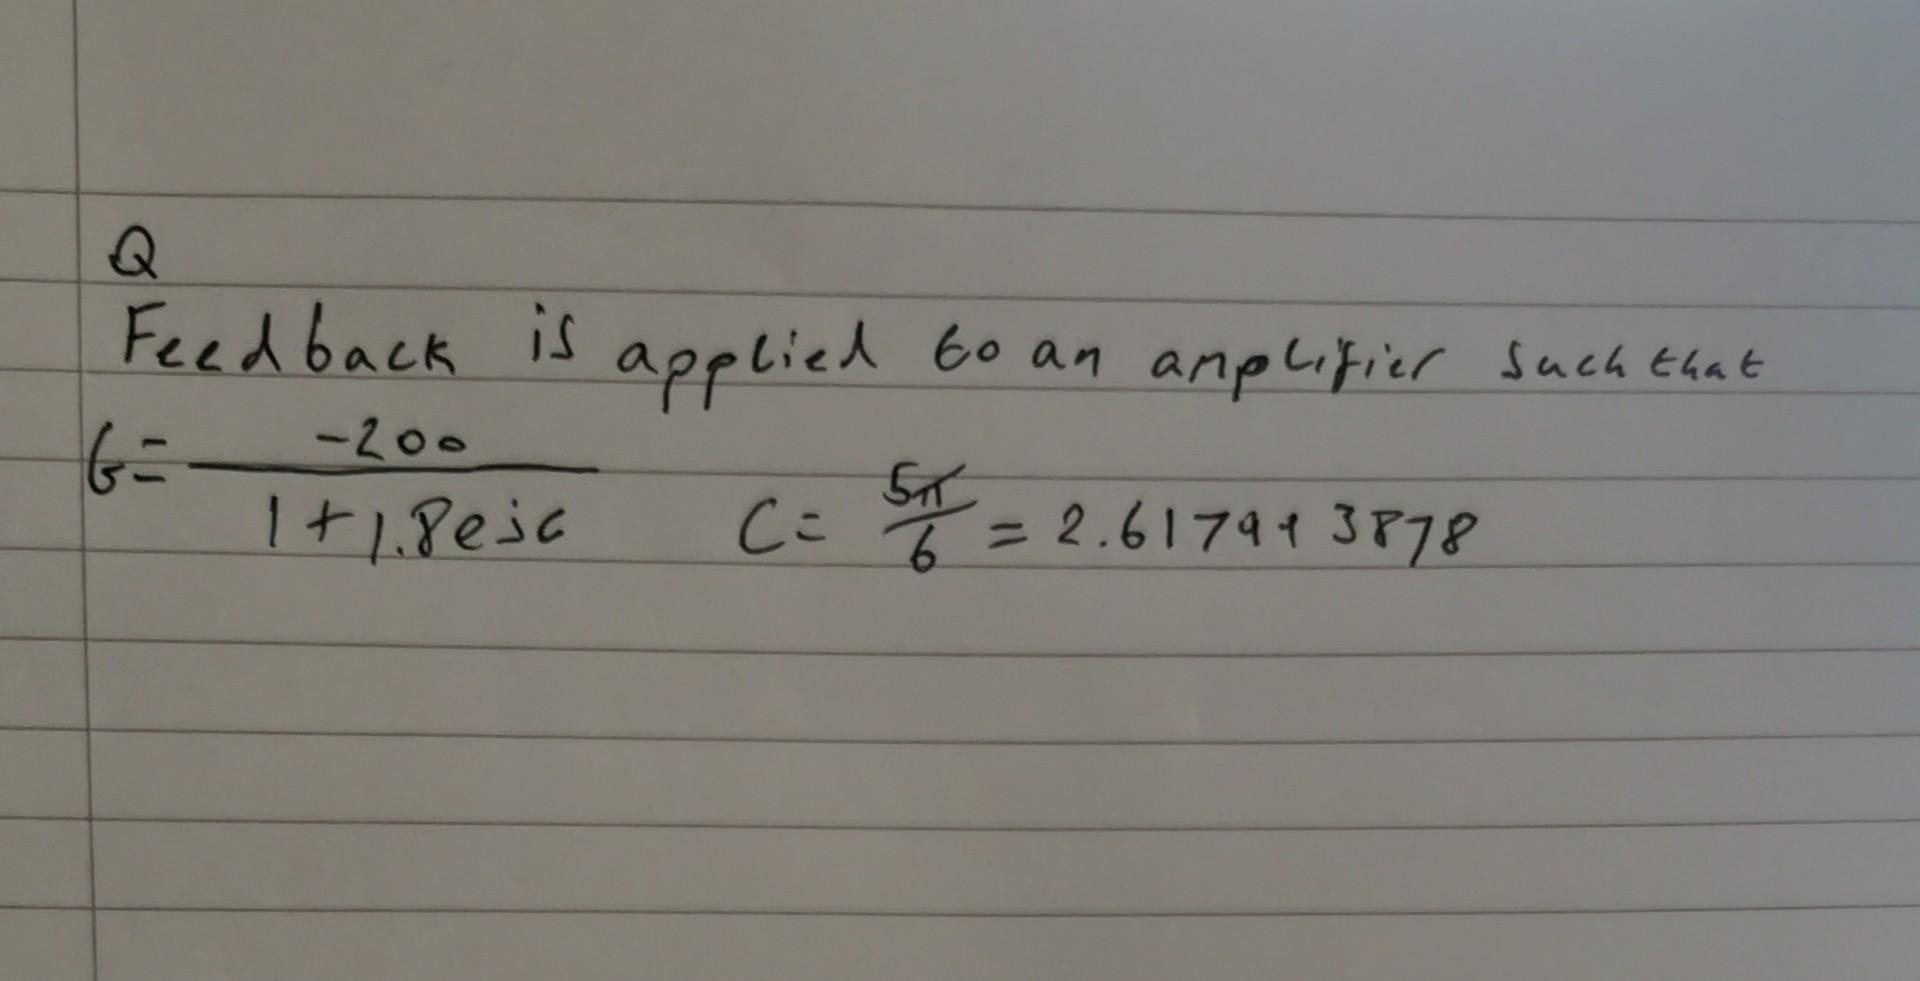 Q
Feedback is applied to an amplifier such that
G = -200 / 1 + 1.8ejc C = 5π/6 = 2.617993878